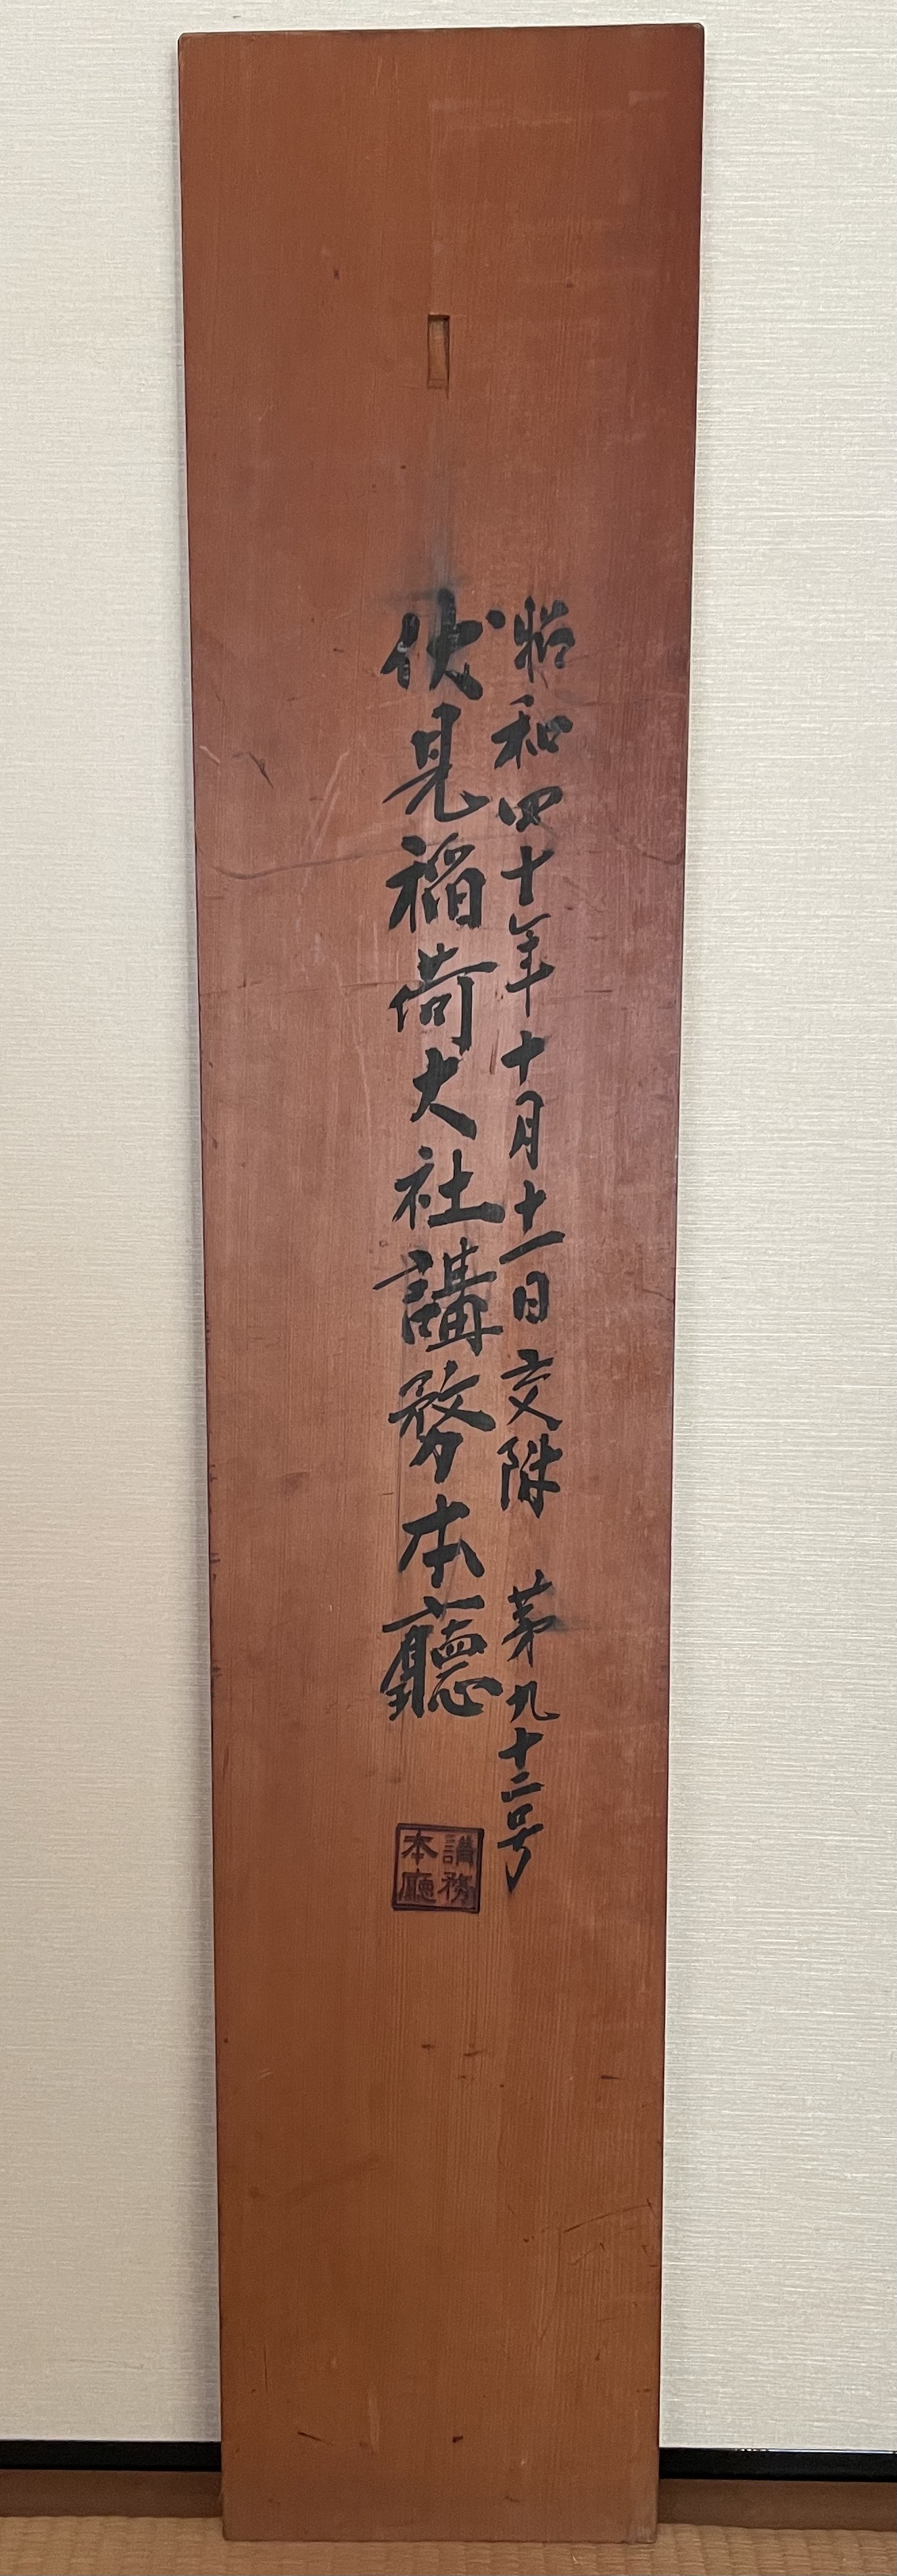 昭和四十年十月十一日交附 第九十二号
伏見稲荷大社講務本廳
講務
本廳